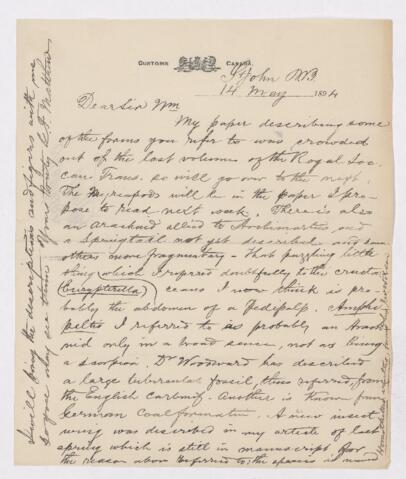 CUSTOMS CANADA.
St John N.B.
14 May 1894
Dear Sir Wm
My paper describing some
of the forms you refer to was crowded
out of the last volume of the Royal Soc.
Can. Trans. so will go over to the next.
The Myriapods will be in the paper I pro-
pose to read next week. There is also
an Arachnid allied to and
a Springtail not yet described and some
others more fragmentary – that puzzling little
thing which I referred doubtfully to the crusta-
ceans (Eurypterella) I now think is pro-
bably the abdomen of a Pedipalp. Amphi-
peltis I referred to as probably an Arach-
nid only in a broad sense, not as being
a scorpion. Dr Woodward has described
a large tubercular fossil, thus referred, from
the English Carbonif. Another is known from
German Coal formation. A new insect
wing was described in my article of last
spring which is still in manuscript for
the reason above referred to; the species is named
I will bring the descriptions and figures with me
so you may see them. Yours truly G. F. Matthew